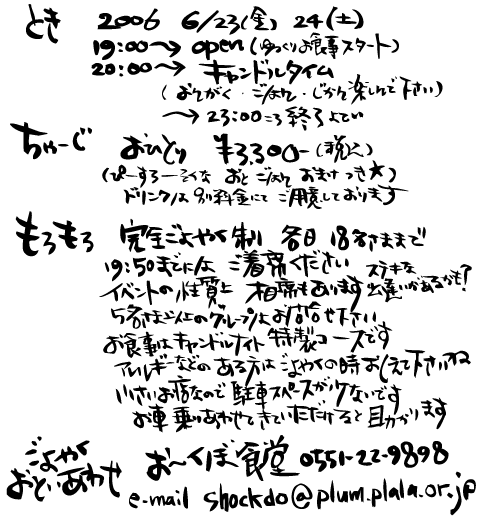 とき 2006 6/23(金) 24(土)
19:00〜→ open (ゆっくりお食事スタート)
20:00〜→ キャンドルタイム
(おんがく・ごはん・じかんを楽しんで下さい)
〜→ 23:00ころ終了よてい
ちゃーじ おひとり ¥3,300-(税込)
(ぴーすろーそくな おと ごはん おまけつき★)
ドリンクは別料金にて ご用意しております
もろもろ 完全ごよやく制 各日 18名さままで
19:50までには ご着席ください
イベントの性質上 相席もあります ステキな出逢いがあるかも?
5名さま以上のグループはお問合せ下さい
お食事はキャンドルナイト 特製コースです
アレルギーなどのある方はごよやくの時おしえて下さいね
小さいお店なので 駐車スペースが少ないです
お車乗りあわせてきていただけると 助かります
ごよやく おといあわせ お〜くぼ食堂 0551-22-9898
e-mail shockdo@plum.plala.or.jp